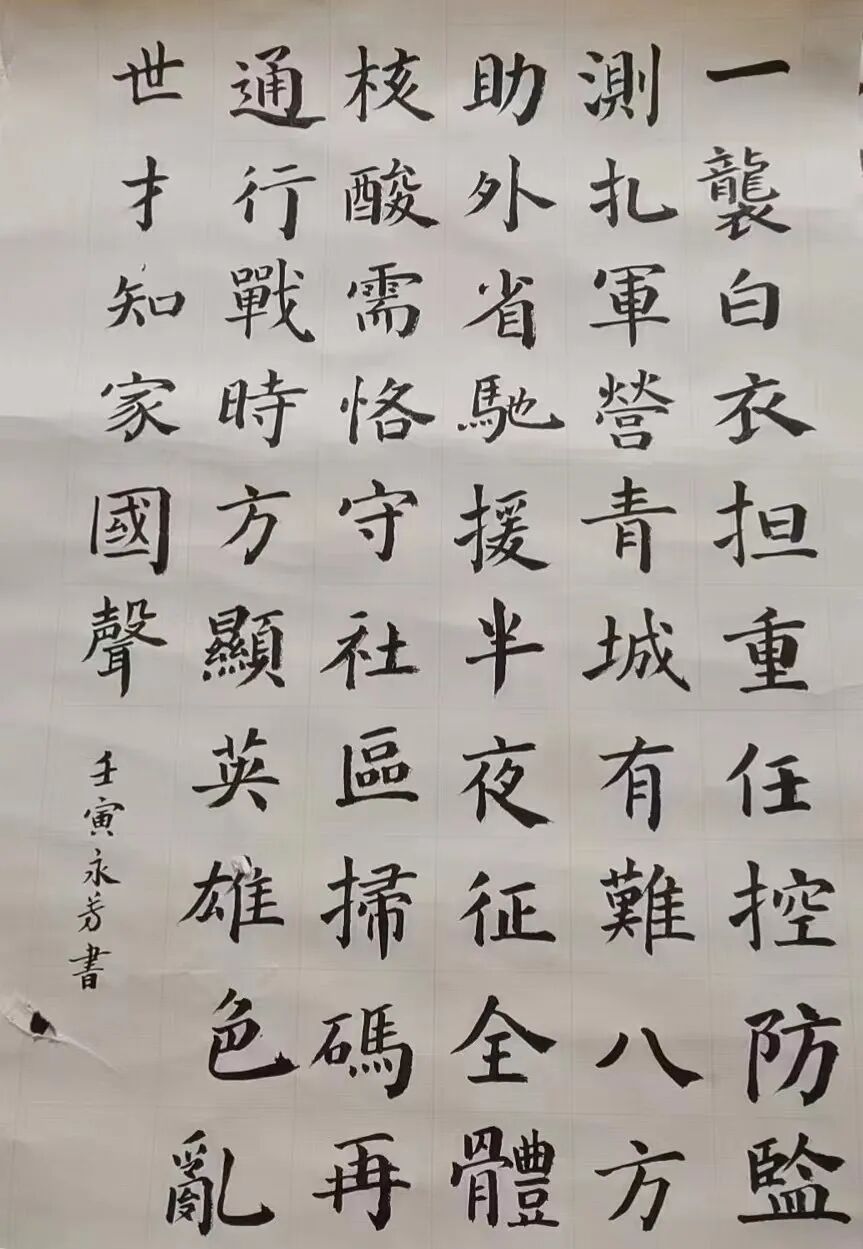 一襲白衣担重任控防監
測扎軍營青城有難八方
助外省馳援半夜征全體
核酸需恪守社區掃碼再
通行戰時方顯英雄色亂
世才知家國聲
壬寅永芳書